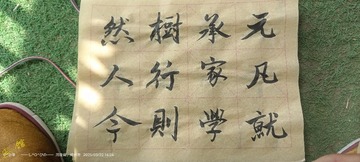 元凡就
承家學
樹行則
然人今